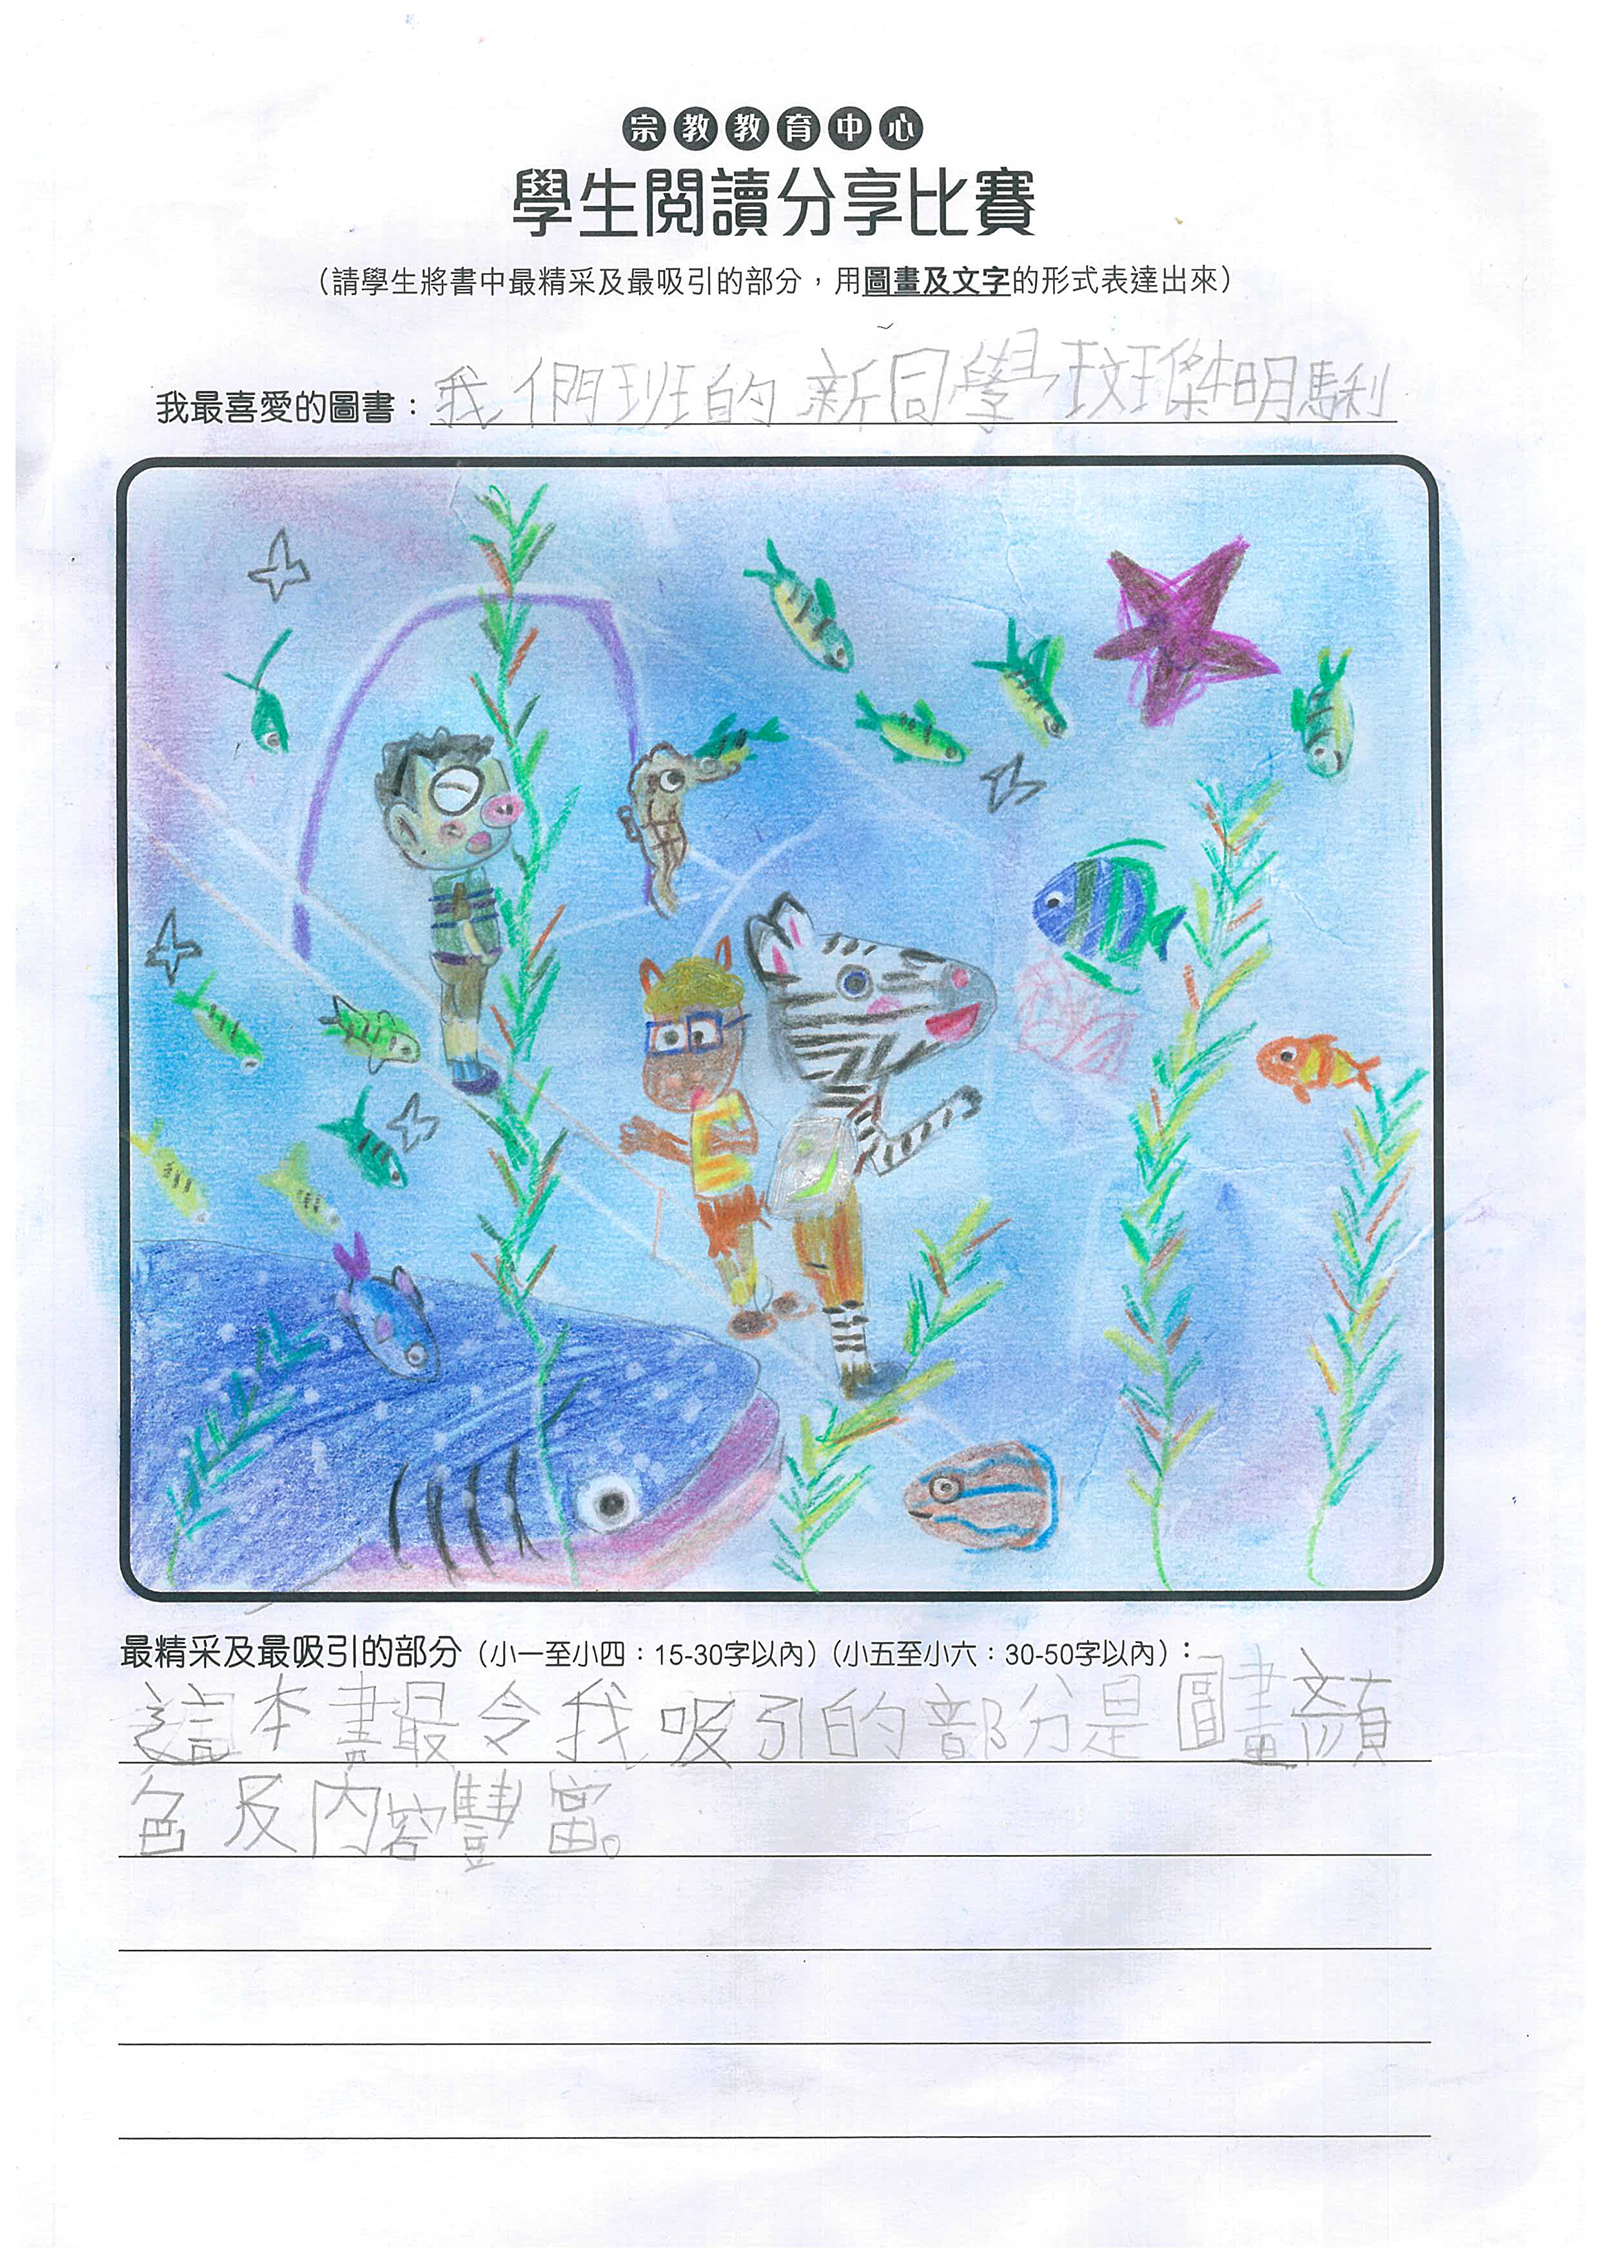 宗教教育中心
學生閱讀分享比賽
（請學生將書中最精采及最吸引的部分，用圖畫及文字的形式表達出來）
我最喜愛的圖書：我們班的新同學斑傑明馬利
最精采及最吸引的部分（小一至小四：15-30字以內）（小五至小六：30-50字以內）：
這本書最令我吸引的部分是圖畫顏
色及內容豐富。